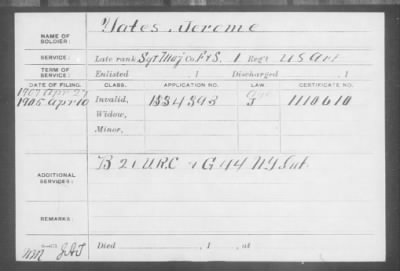 NAME OF SOLDIER: Yates, Jerome
SERVICE: Late rank Sgt Maj Co. F & S, 1 Reg't U S Art
TERM OF SERVICE: Enlisted , 1 Discharged , 1
DATE OF FILING. CLASS. APPLICATION NO. LAW. CERTIFICATE NO.
1907 Apr 27
1905 Apr 10 Invalid, 1334393 J 1110610
Widow,
Minor,
ADDITIONAL SERVICES: B 21 U.R.C & G 44 NY Inf
REMARKS:
Died , 1 , at